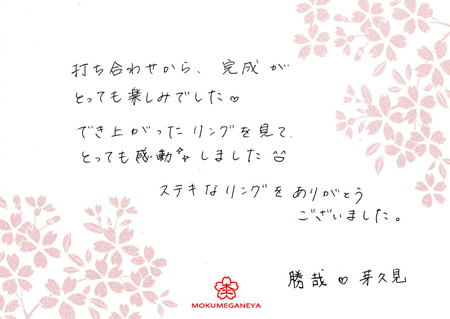 打ち合わせから、完成が
とっても楽しみでした♡
でき上がったリングを見て、
とっても感動✨しました^^
ステキなリングをありがとう
ございました。
勝哉♡芽久見
杢
MOKUMEGANEYA